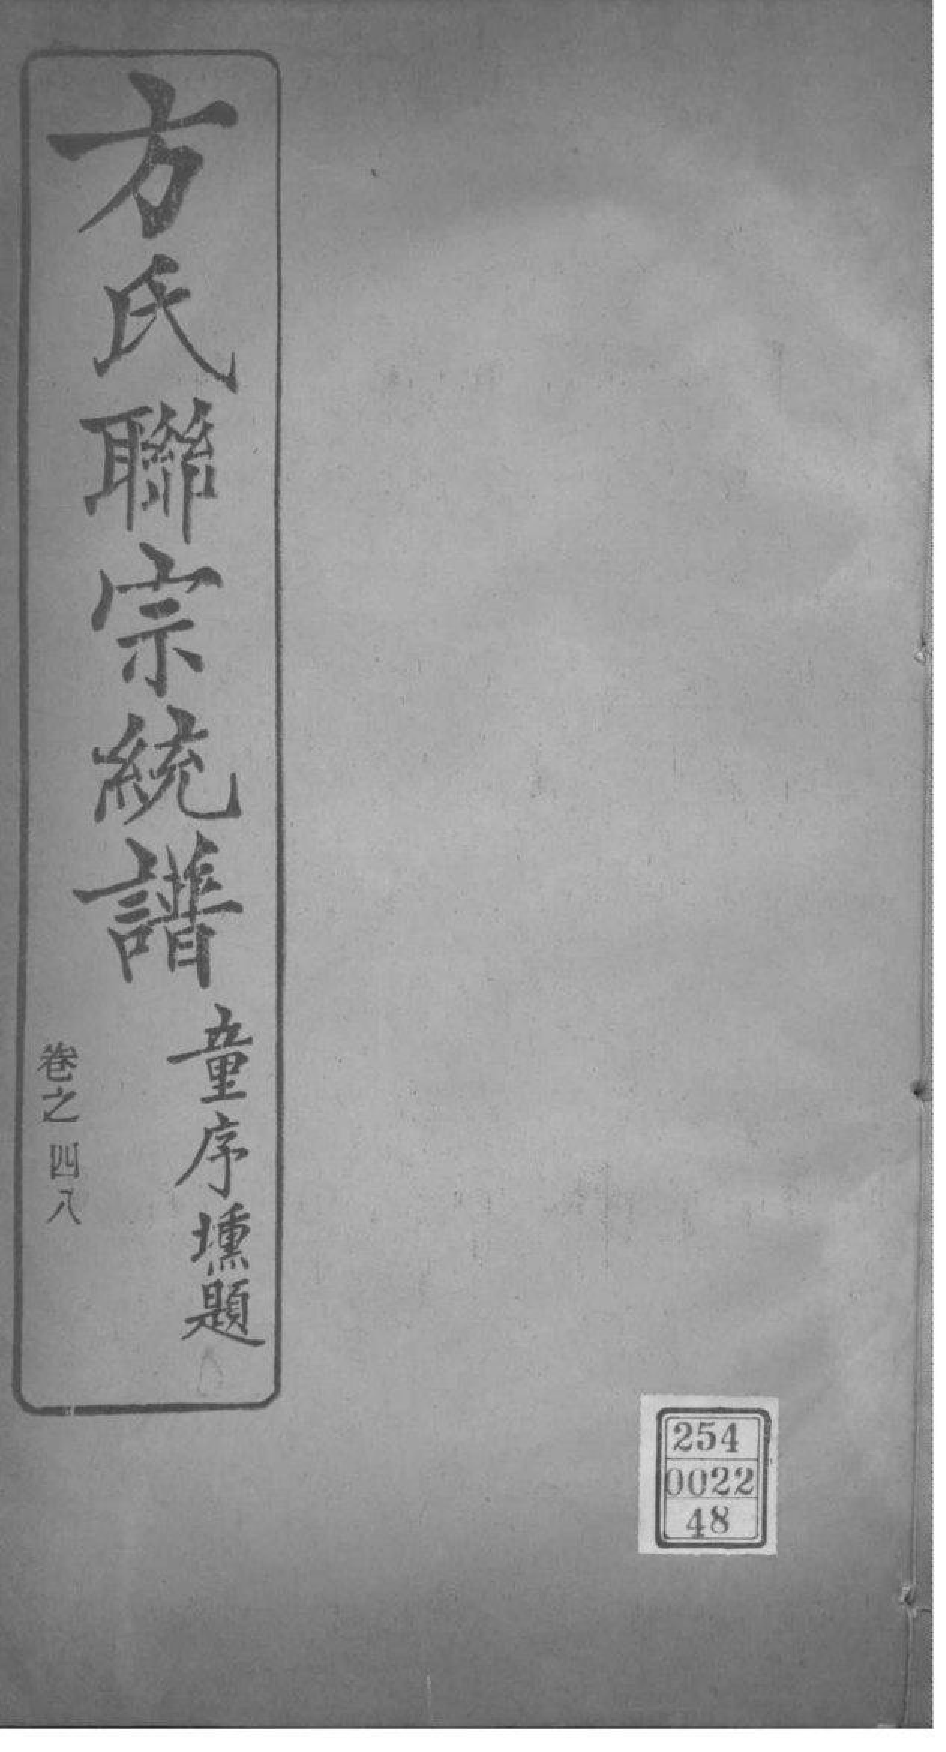 方氏聯宗統譜
童序壎題
卷之四八
254
0022
48